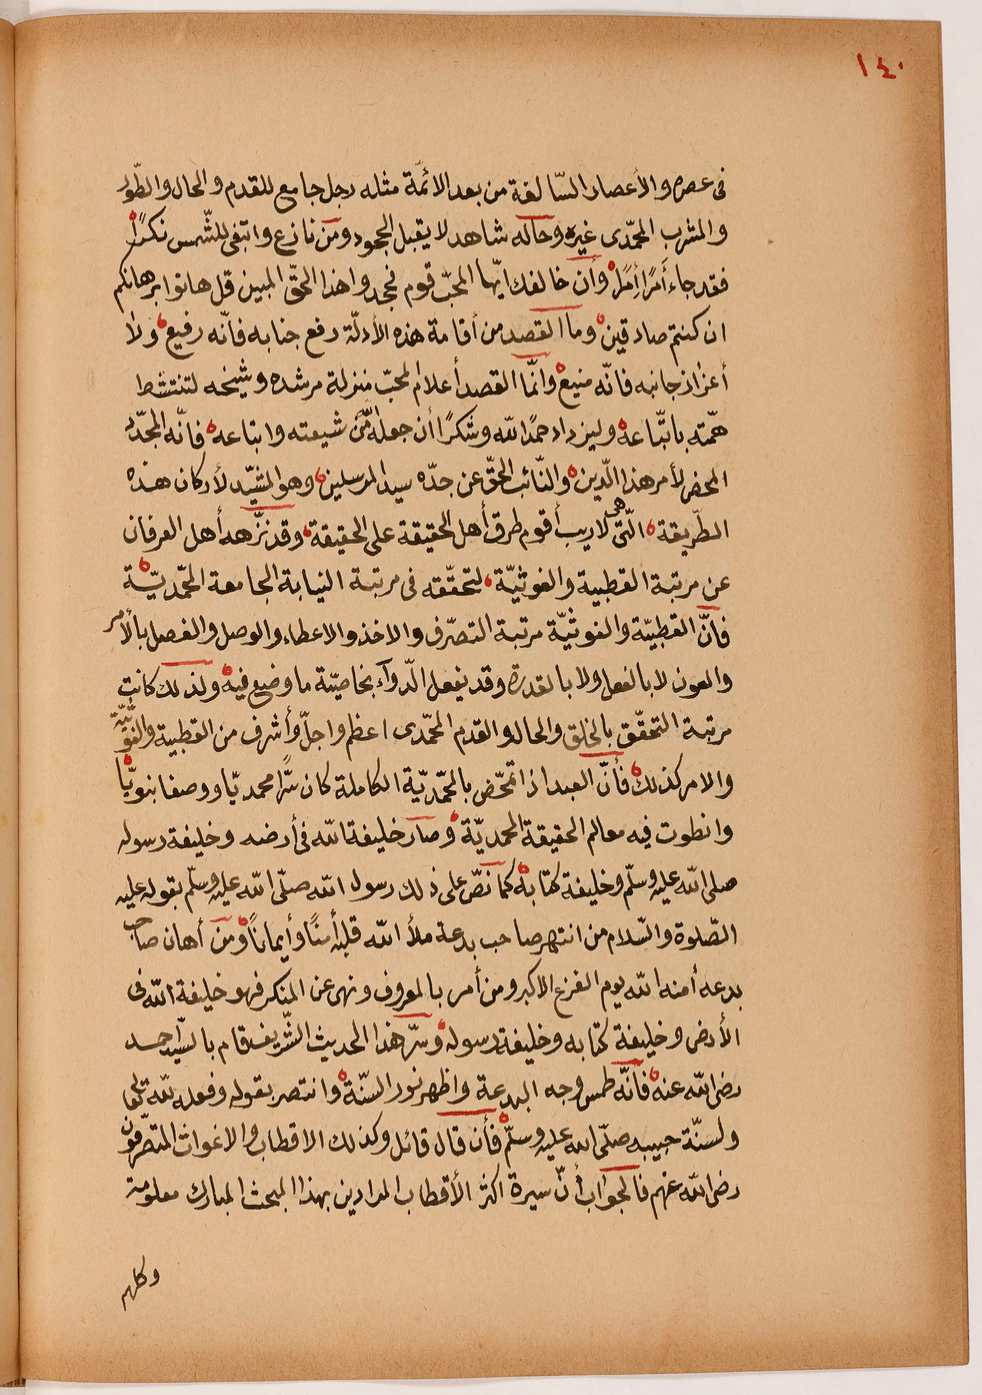 ١٤٠
فى عصره والأعصار السّالفة من بعد الائمّة مثله رجل جامع للقدم والحال والطّور
والمشرب المحمّدى غيره وحاله شاهد لا يقبل الجحود ومن نازع وابتغى للشّمس نكرًا
فقد جاء أمرًا إمرًا وأن خالفك ايّها المحبّ قوم فجحدوا هذا الحقّ المبين قل هاتوا برهانكم
ان كنتم صادقين وما القصد من أقامة هذه الأدلّة رفع جنابه فانّه رفيع ولا
أعزاز جانبه فانّه منيع وانّما القصد أعلام المحبّ منزلة مرشده وشيخه لتنتشط
همّته باتّباعه وليزداد حمدًا لله وشكرًا أن جعله من شيعته واتباعه فانّه المجدّد
المحض لأمر هذا الّدين والنّائب الحقّ عن جدّه سيد المرسلين وهو المشيّد لأركان هذه
الطّريقة الّتى هى لاريب أقوم طرق أهل الحقيقة على الحقيقة وقد نزّهه أهل العرفان
عن مرتبة القطبية والغوثيّة لتحقّقه فى مرتبة النيابة الجامعة المحّمديّة
فانّ القطبيّة والغوثيّة مرتبة التصرّف والاخذ والاعطاء والوصل والفصل بالأمر
والعون لا بالفعل ولا بالقدرة وقد يفعل الّدوآء بخاصيّة ما وضع فيه ولذلك كانت
مرتبة التحقّق بالخلق والحال والقدم المحمّدى اعظم واجلّ وأشرف من القطبية والغوثيّة
والامر كذلك فأنّ العبد اذا تمحّض بالمحّمديّة الكاملة كان سرًّا محمديًّا ووصفا نبويًّا
وانطوت فيه معالم الحقيقة المحمديّة وصار خليفة الله فى أرضه وخليفة رسوله
صلى الله عليه وسلّم وخليفة كتابه كما نصّ على ذلك رسول الله صلّى الله عليه وسلّم بقوله عليه
الصّلوة والسّلام من انتهر صاحب بدعة ملأ الله قلبه أمنًا وأيمانًا ومن أهان صاحب
بدعه أمنه الله يوم الفزع الاكبر ومن أمر بالمعروف ونهى عن المنكر فهو خليفة الله فى
الأرض وخليفة كتابه وخليفة رسوله وسرّ هذا الحديث الشّريف قام بالسيّد احمد
رضى الله عنه فأنّه طمس وجه البدعة واظهر نور السنّة وانتصر بقوله وفعله لله تعالى
ولسنّة حبيبه صلّى الله عليه وسلّم فأن قال قائل وكذلك الاقطاب والاغواث المتصرّفون
رضى الله عنهم فالجواب أنّ سيرة اكثر الأقطاب المرادين بهذا المبحث المبارك معلومة
وكلهم